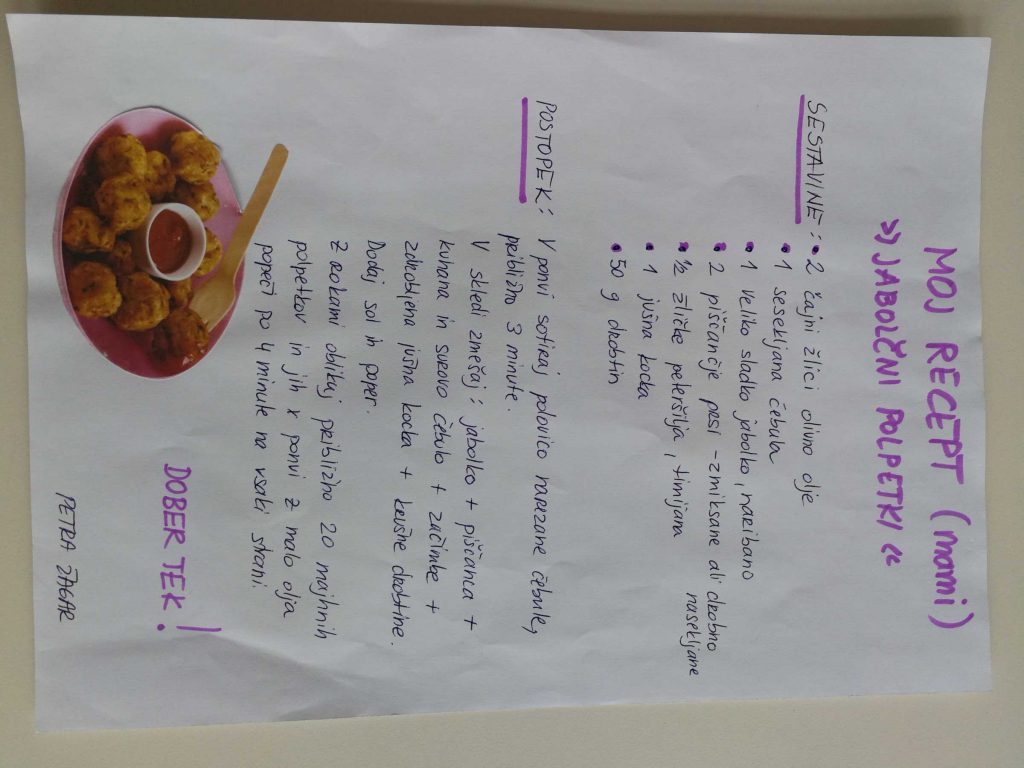 MOJ RECEPT (mami)
»JABOLČNI POLPETKI«
SESTAVINE:
• 2 čajni žlici olivno olje
• 1 sesekljana čebula
• 1 veliko sladko jabolko, naribano
• 2 piščančje prsi - zmiksane ali drobno
nasekljane
• ½ žličke peteršilja, timijana
• 1 jušna kocka
• 50 g drobtin
POSTOPEK: V ponvi sotiraj polovico narezane čebule,
približno 3 minute.
V skledi zmešaj: jabolko + piščanca +
kuhana in surovo čebulo + začimbe +
zdrobljena jušna kocka + krušne drobtine.
Dodaj sol in poper.
Z rokami oblikuj približno 20 majhnih
polpetkov in jih v ponvi z malo olja
popeči po 4 minute na vsaki strani.
DOBER TEK!
PETRA ŽAGAR